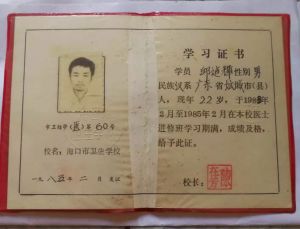 市卫结字(医)第60号
校名：海口市卫生学校
一九八五年二月 发证
学习证书
学员 性别 男
民族汉系广东省 市(县)
人，现年22岁，于198
2月至1985年2月在本校医士
进修班学习期满，成绩及格，
给予此证。
校长：